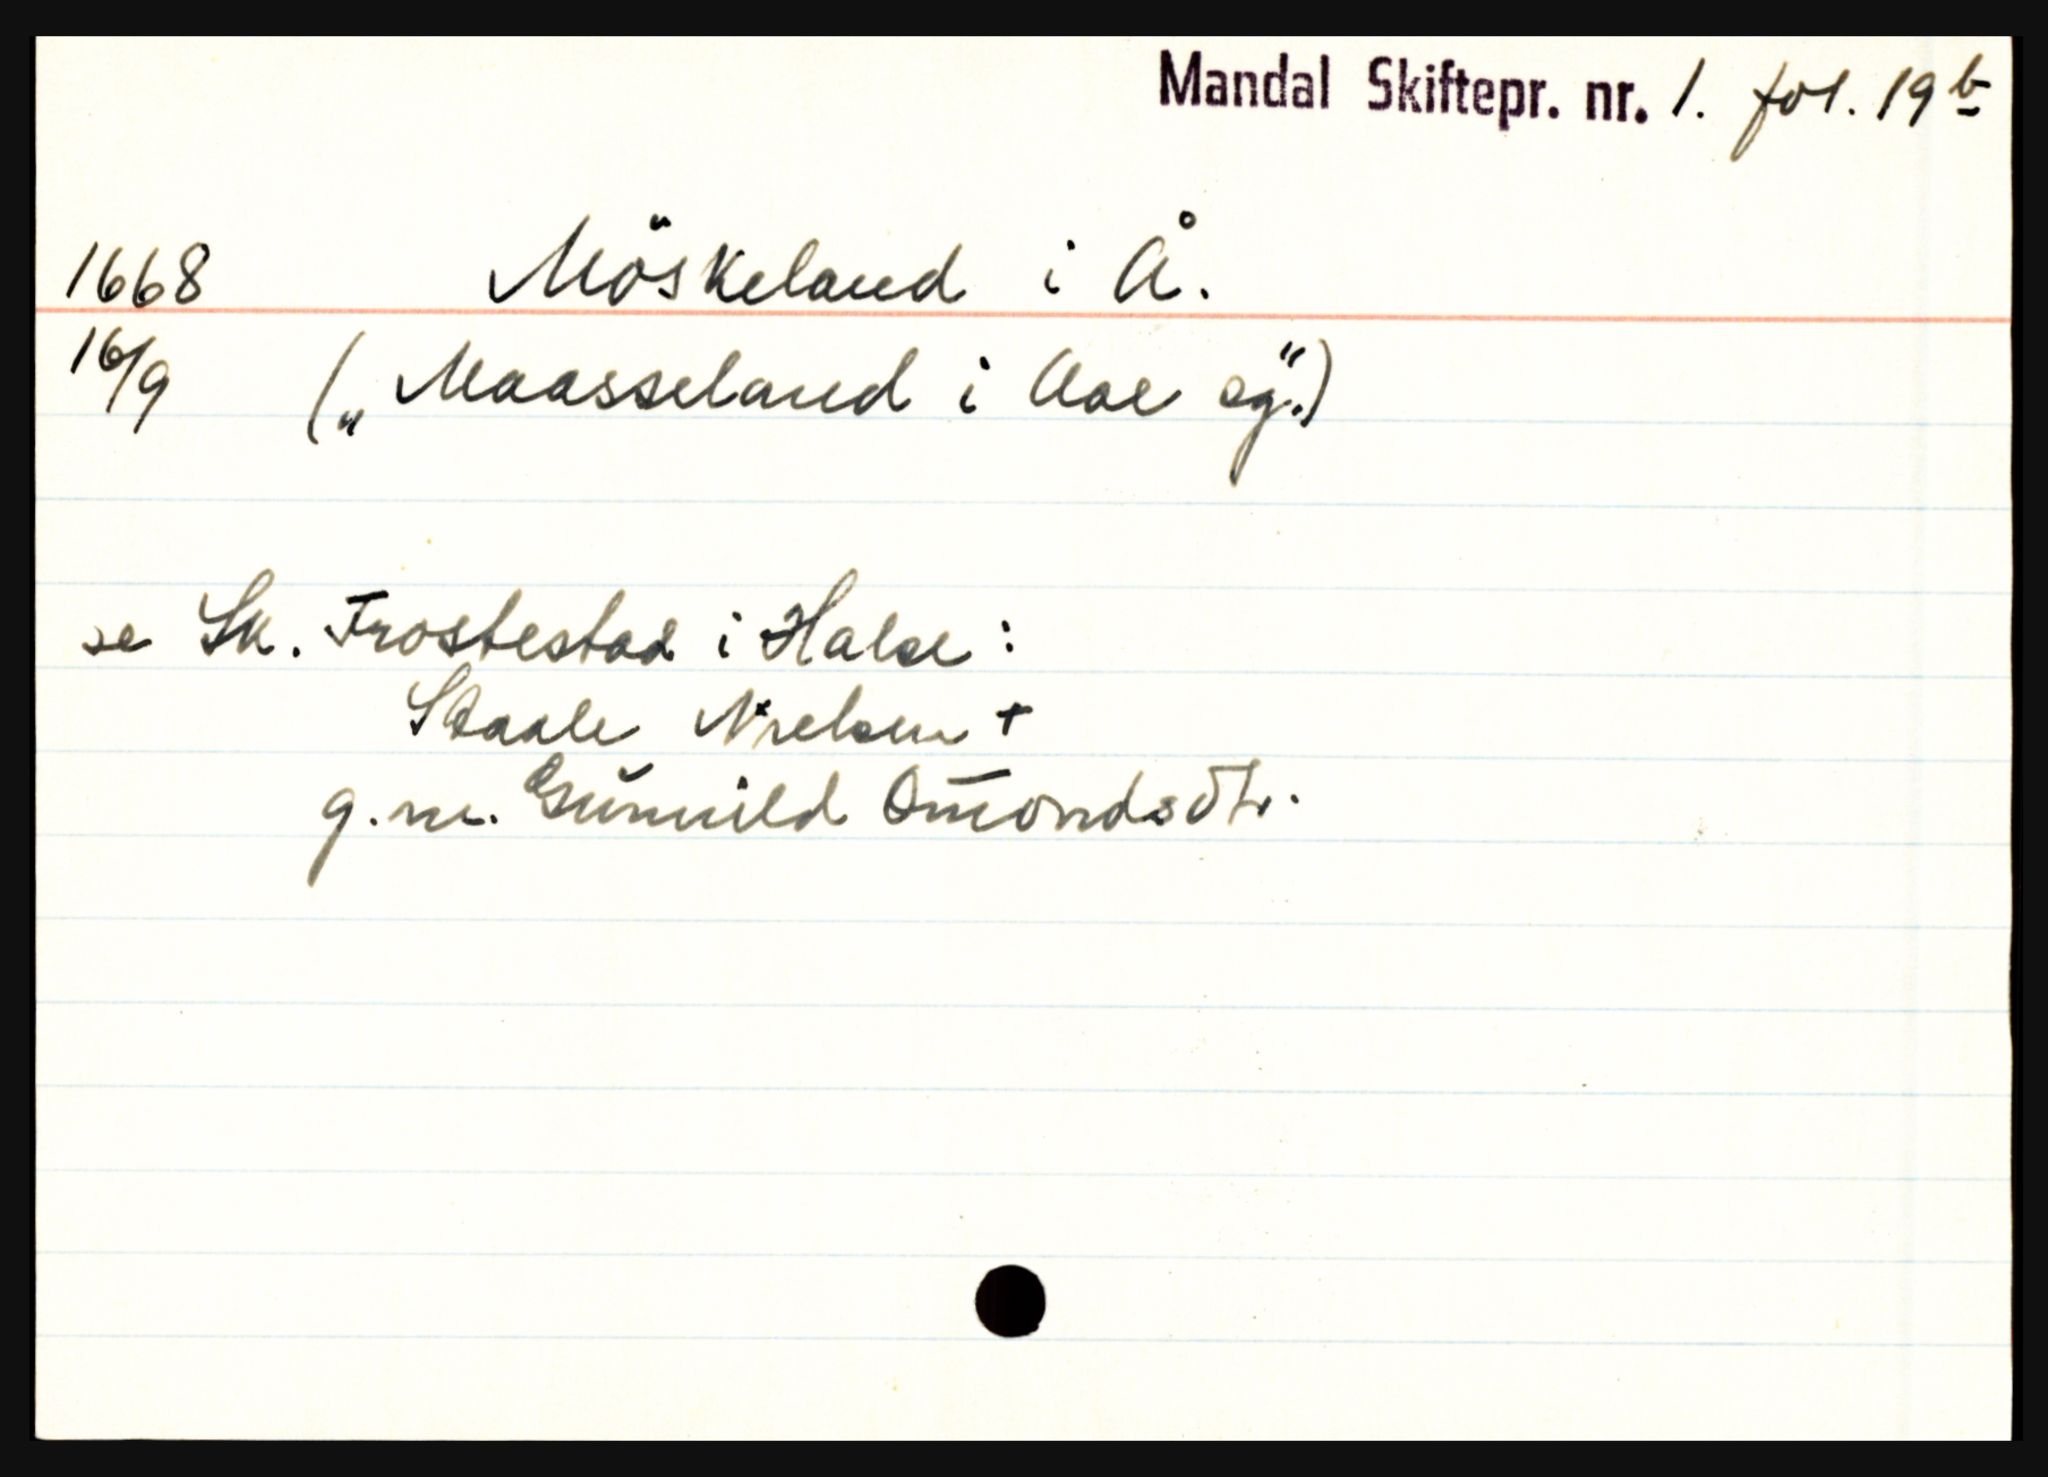 Mandal Skiftepr. nr. 1. fol. 19 b
1668 Möskeland i Å.
16/9 („Maasseland i Aae sg.")
se Sk. Frostestad i Halse:
Staale Nielsen +
g. m. Gunnild Omondsdtr.